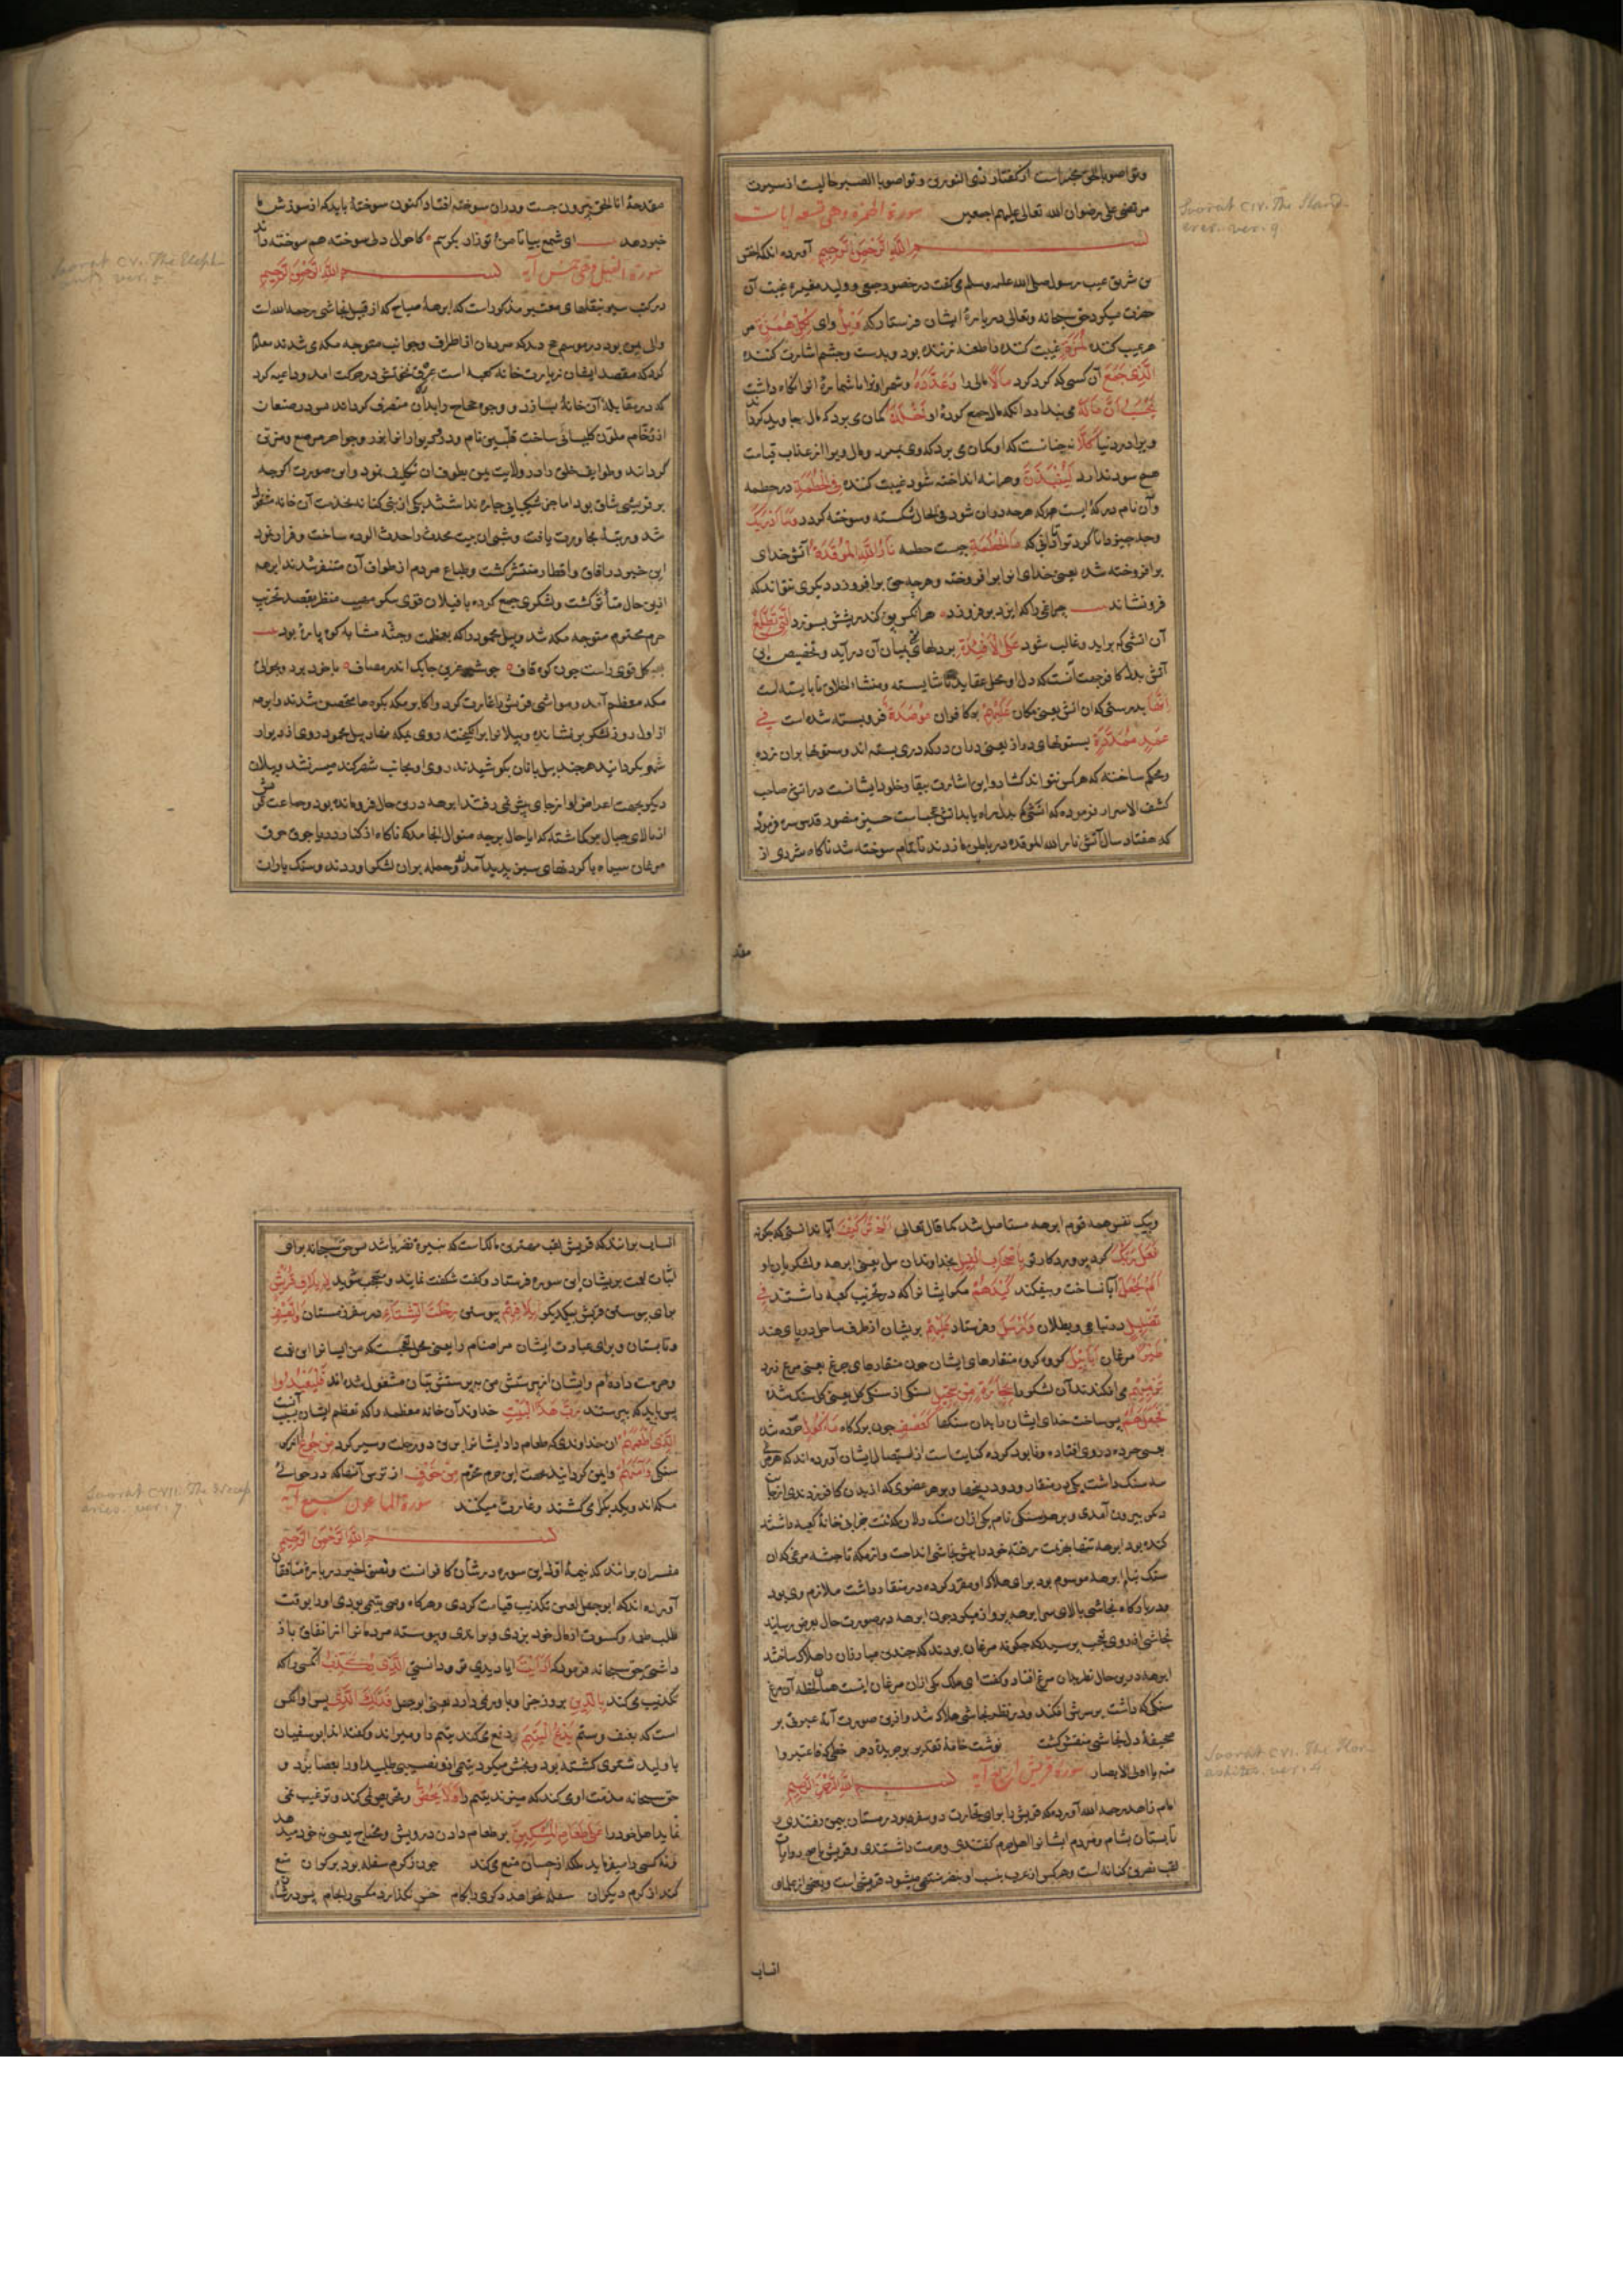 وتواصوا بالحق عبارتست از گفتار ذی النورین وتواصوا بالصبر حالیست از سیرت
مرتضی علی رضوان الله تعالی علیهم اجمعین سورة الهمزة وهی تسعه ایات
Soorat CIV. The Slanderer. ver. 9
بسم الله الرحمن الرحیم آورده اند که اخنس
بن شریق عیب رسول صلی الله علیه وسلم می کفت در حضور جمعی و ولید مغیره غیبت آن
حضرت میکرد حق سبحانه وتعالی در باره ایشان فرستاد که وَیْلٌ وای لِکُلِّ هُمَزَةٍ مر
هر عیب کننده لُمَزَةٍ غیبت کننده یا طعنه زننده بود و بدست وچشم اشارت کننده
الَّذِی جَمَعَ آن کسی که کرد کرد مَالًا مالی را وَعَدَّدَهُ وشمرد او را یا شماره انرا نگاه داشت
یَحْسَبُ اَنَّ مَالَهُ می پندارد انکه مال جمع کرده او اَخْلَدَهُ کمان می برد که مال جاوید کرداند
ویرا در دنیا کَلَّا نه چنانست که او کمان می برد که وی بمیرد ومال ویرا از عذاب قیامت
هیچ سود ندارد لَیُنْبَذَنَّ وهرآینه انداخته شود غیبت کننده فِی الْحُطَمَةِ در حطمه
وآن نام درکه ایست که هرچه در آن شود فی الحال شکسته وسوخته کردد وَمَا اَدْرٰیکَ
وچه چیز دانا کرد ترا تا دانی که مَا الْحُطَمَةُ چیست حطمه نَارُ اللّٰهِ الْمُوقَدَةُ آتش خدای
برافروخته شده یعنی خدای انرا برافروخته وهرچه حق برافروزد دیکری نتواند که
فرو نشاند چراغی را که ایزد بر فروزد هر انکس پف کند ریشش بسوزد الَّتِی تَطَّلِعُ
آن اتشی که براید وغالب شود عَلَی الْاَفْئِدَةِ بر دلهای یعنی بمیان آن درآید وتخصیص این
آتش بدل کافر جهت آنست که دل او محل عقاید ناشایسته ومنشاء اخلاق نابایسته است
اِنَّهَا بدرستی که ان اتش یعنی مکان عَلَیْهِمْ بر کافران مُؤْصَدَةٌ فرو بسته شده است فِی
عَمَدٍ مُمَدَّدَةٍ بستونهای دراز یعنی دران درکه دری بسته اند وستونها بران زده
ومحکم ساخته که هر کس نتواند کشاد واین اشارت ببقا وخلود ایشانست در اتش صاحب
کشف الاسرار فرموده که اتشی که بدل راه یابد اتش عجب است حسین منصور قدس سره فرمود
که هفتاد سال آتش نار الله الموقده در باطن ما زدند تا تمام سوخته شد ناکاه شرری از
مقد
مقدحه انا الحق بیرون جست ودران سوخته افتاد اکنون سوخته باید که از سوزش ما
خبر دهد ای شمع بیا تا من وتو زار بکریم کاحوال دل سوخته هم سوخته داند
سورة الفیل وهی خمس آیه بسم الله الرحمن الرحیم
Soorat CV. The Elephant ver. 5
در کتب سیر بنقلهای معتبر مذکور است که ابرهه صباح که از قبل نجاشی رحمه الله است
والی یمن بود در موسم حج دید که مردمان از اطراف وجوانب متوجه مکه می شدند معلوم
کرد که مقصد ایشان زیارت خانه کعبه است عرق نخوتش در حرکت امد وداعیه کرد
که در مقابله آن خانه بسازد و وجوه حجاج را بدان متصرف کرداند پس در صنعا
از رخام ملون کلیسائی ساخت قلیس نام ودر ودیوار انرا بزر وجواهر مرصع ومزین
کردانید وطوایف خلق را در ولایت یمن بطوف آن تکلیف نمود واین صورت اکرچه
بر قریش شاق بود اما جز شکیبایی چاره نداشتند یکی از بنی کنانه بخدمت آن خانه مشغول
شد ورتبه مجاورت یافت وشبی ان بیت محدث را حدث الوده ساخت وفرار نمود
این خبر در افاق واقطار منتشر کشت وطباع مردم از طواف آن متنفر شدند ابرهه
ازین حال متأثر کشت ولشکری جمع کرده با فیلان قوی پیکر مهیب منظر بقصد تخریب
حرم محترم متوجه مکه شد وپیل محمود را که بعظمت وجثه مشابه کوه پاره بود
بیکل قوی راست چون کوه قاف جوشی عربی چابک اندر مصاف با خود برد وبحوالی
مکه معظمه آمد ومواشی قریش را غارت کرد واکابر مکه بکوه ها متحصن شدند وابرهه
از اول روز لشکر بر نشانده وپیلانرا برانکیخته روی بمکه نهاد پیل محمود روی از دیوار
شهر بکردانید هرچند پیل بانان بکوشیدند روی او بجانب شهر کند میسر نشد وپیلان
دیکر بجهت اعراض او از جای پیش نمی رفتند ابرهه درین حال فرو مانده بود وجماعت قریش
از بالای جبال می کماشته که ایا حال برچه منوال انجامد که ناکاه از کنار دریا جوق جوق
مرغان سیاه با کردنهای سبز پدید آمدند وحمله بران لشکر اوردند وسنک باران
وبیک نفس همه قوم ابرهه مستاصل شد کما قال تعالی اَلَمْ تَرَ کَیْفَ آیا ندانستی که چکونه
فَعَلَ رَبُّکَ کرد پروردکار تو بِاَصْحَابِ الْفِیلِ بخداوندان پیل یعنی ابرهه ولشکریان او
اَلَمْ یَجْعَلْ آیا نساخت وبیفکند کَیْدَهُمْ مکر ایشانرا که در تخریب کعبه داشتند فِی
تَضْلِیلٍ در تباهی وبطلان وَاَرْسَلَ وفرستاد عَلَیْهِمْ بریشان از طرف ساحل دریای هند
طَیْرًا مرغان اَبَابِیلَ کروه کروه منقارهای ایشان چون منقارهای مرغ یعنی مرغ زرد
تَرْمِیهِمْ می افکندند آن لشکر را بِحِجَارَةٍ مِنْ سِجِّیلٍ سنکی از سنک کل یعنی کل سنک شده
فَجَعَلَهُمْ پس ساخت خدای ایشان را بدان سنکها کَعَصْفٍ چون برک کاه مَأْکُولٍ خورده شده
سه سنک داشت یکی در منقار ودو در پنجها وبر هر عضوی که از بدن کافر زدندی از جانب
دیکر بیرون آمدی وبر هر سنکی نام یکی ازان سنک دلان که نیت خرابی خانه کعبه داشتند
کنده بود ابرهه تنها بهزیمت رفته خود را پیش نجاشی انداخت واز مکه تا حبشه مرغی که ان
سنک بنام ابرهه موسوم بود برای هلاک او مقرر کرده در منقار داشت ملازم وی بود
ودر بارکاه نجاشی بالای سر ابرهه پرواز میکرد چون ابرهه در صورت حال بعرض رسانید
نجاشی از روی تعجب پرسید که چکونه مرغان بودند که چندین مبارزان را هلاک ساختند
ابرهه درین حال نظرش بدان مرغ افتاد وکفت ای ملک یکی ازان مرغان اینست همان لحظه آن مرغ
سنکی که داشت بر سرش افکند ودر نظر نجاشی هلاک شد وازین صورت آیه عبرت بر
صحیفه دل نجاشی منقش کشت نوشت خامه تقدیر بر جریده دهر خطی که فاعتبروا
منه یا اولی الابصار سورة قریش اربع آیه بسم الله الرحمن الرحیم
Soorat CVI. The Korashites. ver. 4
امام زاهد رحمه الله آورده که قریش را برای تجارت دو سفر بود زمستان بیمن رفتندی و
تابستان بشام ومردم ایشانرا اهل حرم کفتندی وحرمت داشتندی وقریش باصح روایات
لقب نضر بن کنانه است وهر کس از عرب بنسب او بنضر منتهی میشود قریشی است وبعضی از علماء
انساب
انساب برانند که قریش لقب فهر بن مالک است که نبیره نضر باشد پس حق سبحانه برای
اثبات نعمت بریشان این سوره فرستاد وکفت شکفت نمایند وتعجب شوید لِاِیلَافِ قُرَیْشٍ
برای پیوستن قریش بیکدیکر اِیلَافِهِمْ پیوستن رِحْلَةَ الشِّتَاءِ در سفر زمستان وَالصَّیْفِ
وتابستان وبرای عبادت ایشان مر اصنام را یعنی محل تعجبست که من ایشانرا این نعمت
وحرمت داده ام وایشان از پرستش من بپرستش بتان مشغول شده اند فَلْیَعْبُدُوا
پس باید که بپرستند رَبَّ هٰذَا الْبَیْتِ خداوند آن خانه معظمه را که تعظیم ایشان بسبب آنست
الَّذِی اَطْعَمَهُمْ ان خداوندی که طعام داد ایشانرا برین دو رحلت وسیر کرد مِنْ جُوعٍ از کر
سنکی وَاٰمَنَهُمْ وایمن کردانید بجهت این حرم محترم مِنْ خَوْفٍ از ترس آنها که در حوالی
مکه اند ویکدیکر می کشند وغارت میکنند سورة الماعون سبع آیه
Soorat CVII. The Necessaries. ver. 7
بسم الله الرحمن الرحیم
مفسران برانند که نیمه اول این سوره در شان کافرانست ونصف اخیر در باره منافقان
آورده اند که ابوجهل لعین تکذیب قیامت کردی وهرکاه وصی یتیمی بودی او را بوقت
طلب طعمه وکسوت از مال خود بزدی وبراندی وپیوسته مردمانرا از انفاق باز
داشتی حق سبحانه فرمود که اَرَاَیْتَ ایا دیدی تو ودانستی الَّذِی یُکَذِّبُ انکس را که
تکذیب می کند بِالدِّینِ بروز جزا وباور نمی دارد یعنی ابوجهل فَذٰلِکَ الَّذِی پس او انکس
است که بعنف وستم یَدُعُّ الْیَتِیمَ دفع می کند یتیم را ومیراند وکفته اند ابوسفیان
یا ولید شتری کشته بود وبخش میکرد یتیمی ازو نصیبی طلبید او را بعصا بزد و
حق سبحانه مذمت اوی کند که میزند یتیم را وَلَا یَحُضُّ وتحریص نمی کند وترغیب نمی
نماید اهل خود را عَلٰی طَعَامِ الْمِسْکِینِ بر طعام دادن درویش ومحتاج یعنی نه خود میدهد
ونه کسی را میفرماید بلکه از احسان منع می کند چون ز کرم سفله بود بر کران منع
کند از کرم دیکران